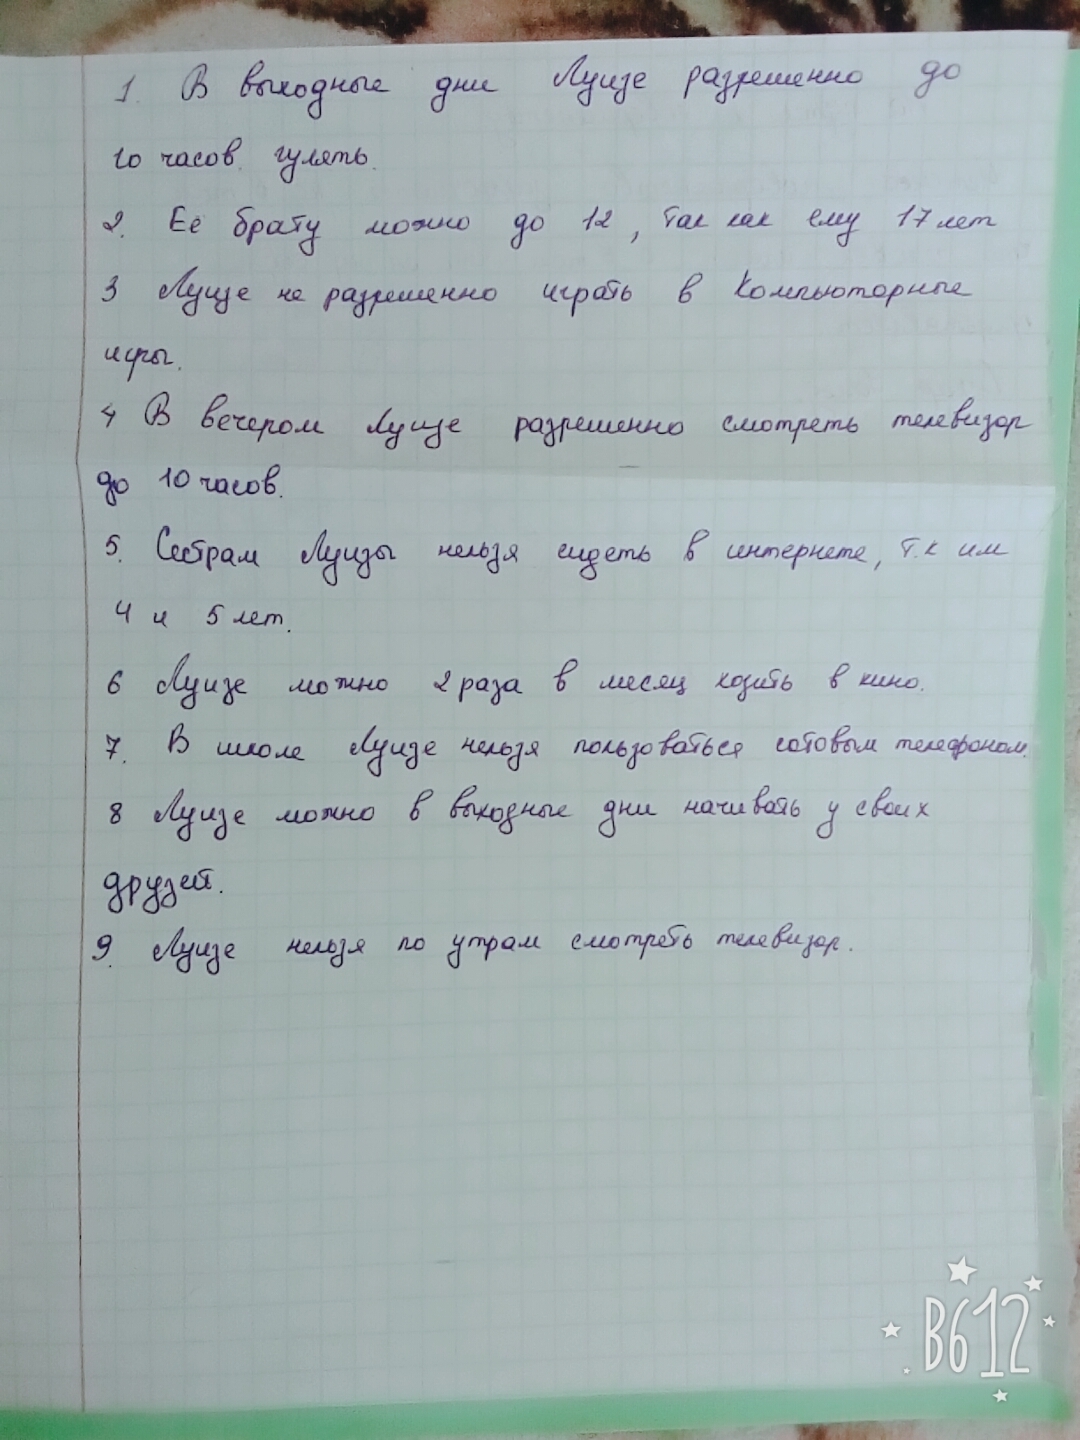 1. В выходные дни Луизе разрешенно до
10 часов. гулять.
2. Её брату можно до 12, так как ему 17 лет
3 Луизе не разрешенно играть в Компьюторные
игры.
4 В вечером Луизе разрешенно смотреть телевизор
до 10 часов.
5. Сестрам Луизы нельзя сидеть в интернете, т.к им
4 и 5 лет.
6 Луизе можно 2 раза в месяц ходить в кино.
7. В школе Луизе нельзя пользоваться сотовым телефоном.
8 Луизе можно в выходные дни начивать у своих
друзей.
9. Луизе нельзя по утрам смотреть телевизор.
B612